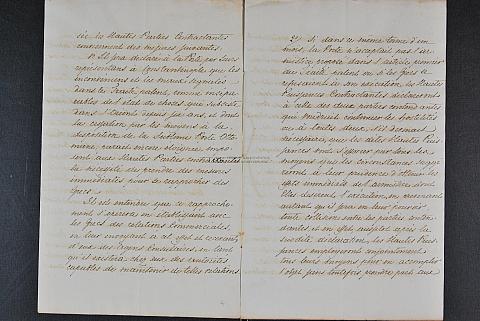 sée, les Hautes Parties Contractantes
conviennent des mesures suivantes.
1º Il sera déclaré à la Porte, par leurs
représentans à Constantinople, que les
inconvéniens et les maux signalés
dans le Traité patent, comme insépa-
rables de l'état de choses qui subsiste
dans l'Orient depuis six ans, et dont
la cessation par les moyens à la
disposition de la Sublime Porte Otto-
mane, paraît encore éloignée, impo-
sent aux Hautes Parties Contractantes
la nécessité de prendre des mesures
immédiates pour un rapprochement avec les
Grecs.
Il est entendu que ce rapproche-
ment s'opérera en établissant avec
les Grecs des relations Commerciales,
en leur envoyant à cet effet et recevant
d'eux des Agens Consulaires, en tant
qu'il existera chez eux des autorités
capables de maintenir de telles relations.
2º Si dans ce même terme d'un
mois, la Porte n'accepte pas l'ar-
mistice proposé dans l'article premier
du Traité patent, ou si les Grecs se
refusent à son exécution, les Hautes
Puissances Contractantes déclareront
à celle des deux parties contendantes
qui voudrait continuer les hostilités
ou à toutes deux, s'il devenait
nécessaire, que les dites Hautes Puis-
sances vont s'efforcer par tous les
moyens que les circonstances suggé-
reront à leur prudence d'obtenir les
effets immédiats de l'armistice dont
Elles désirent l'exécution, en prévenant
autant qu'il sera en leur pouvoir
toute collision entre les parties conten-
dantes, et en effet, aussitôt après la
susdite déclaration, les Hautes Puis-
sances emploieront conjointement
tous leurs moyens pour en accomplir
l'objet sans toutefois prendre part aux